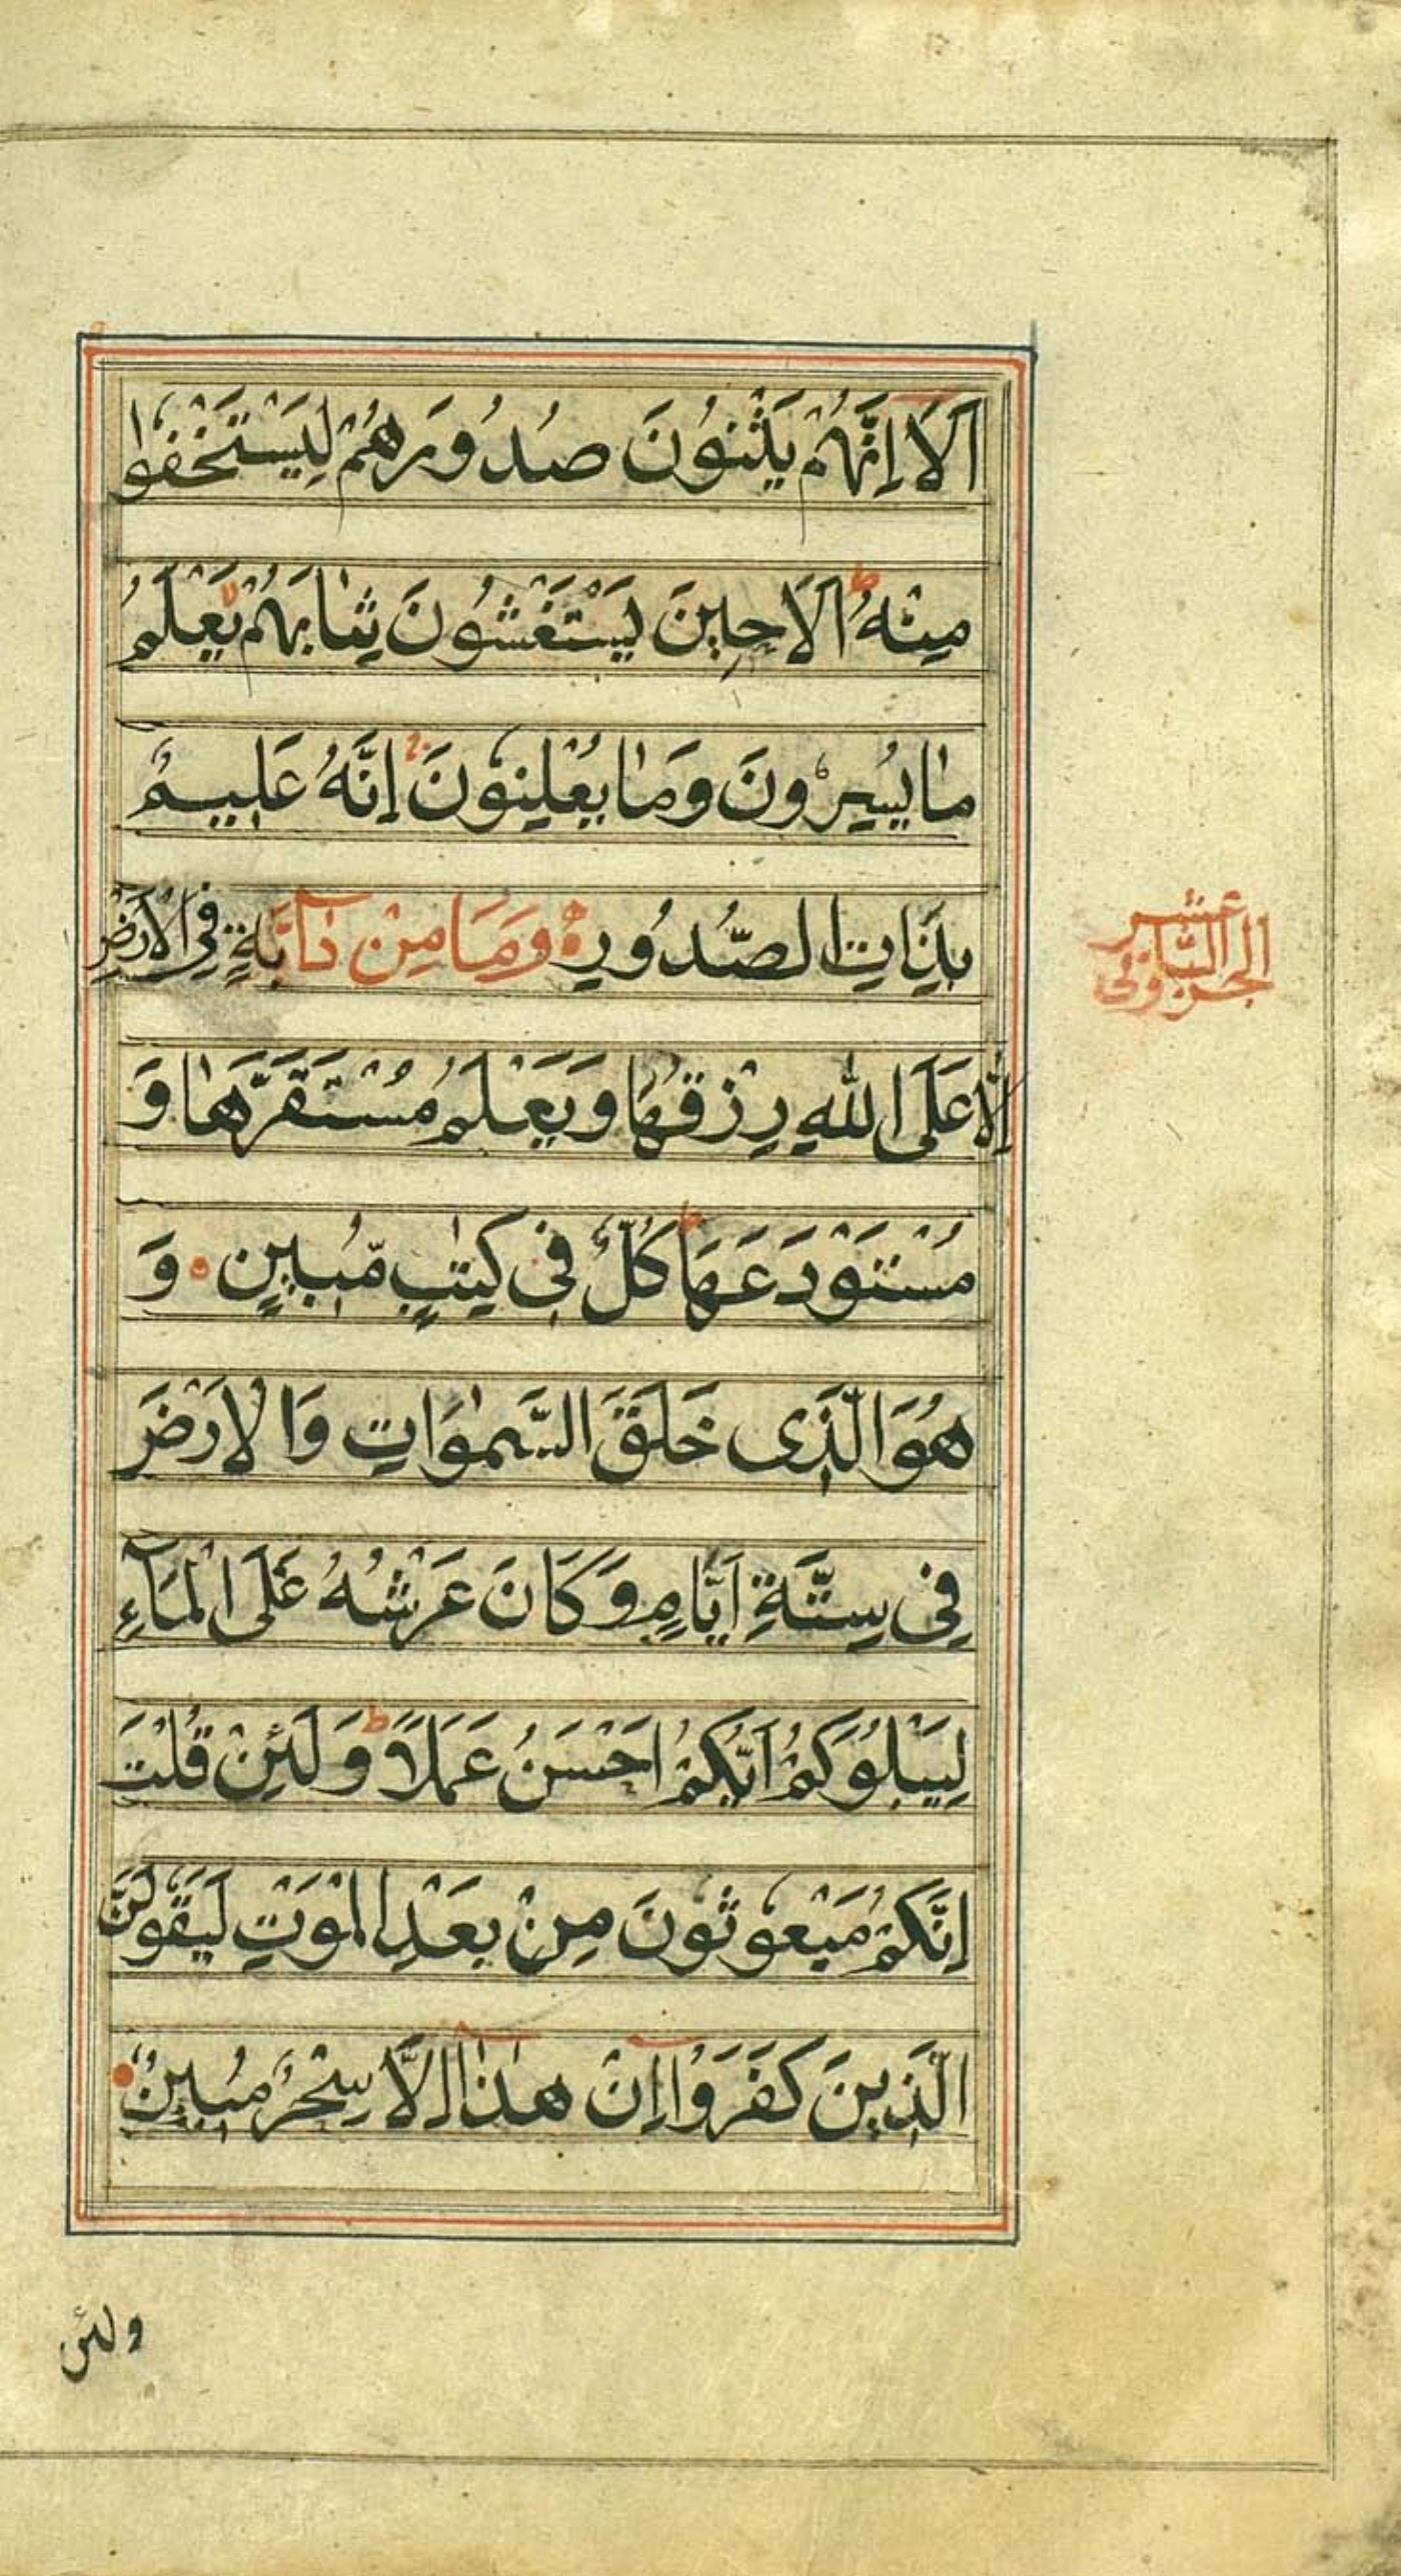 اَلَا اِنَّهُمْ يَثْنُوْنَ صُدُوْرَهُمْ لِيَسْتَخْفُوْا
مِنْهُ ط اَلَا حِيْنَ يَسْتَغْشُوْنَ ثِيَابَهُمْ لا يَعْلَمُ
مَا يُسِرُّوْنَ وَمَا يُعْلِنُوْنَ ج اِنَّهُ عَلِيْمٌ
بِذَاتِ الصُّدُوْرِ ه وَمَا مِنْ دَآبَّةٍ فِي الْاَرْضِ
الجزو الثاني عشر
اِلَّا عَلَى اللّٰهِ رِزْقُهَا وَيَعْلَمُ مُسْتَقَرَّهَا وَ
مُسْتَوْدَعَهَا ط كُلٌّ فِيْ كِتٰبٍ مُّبِيْنٍ ۰ وَ
هُوَ الَّذِي خَلَقَ السَّمٰوَاتِ وَالْاَرْضَ
فِي سِتَّةِ اَيَّامٍ وَكَانَ عَرْشُهُ عَلَى الْمَآءِ
لِيَبْلُوَكُمْ اَيُّكُمْ اَحْسَنُ عَمَلًا ط وَلَئِنْ قُلْتَ
اِنَّكُمْ مَبْعُوْثُوْنَ مِنْ بَعْدِ الْمَوْتِ لَيَقُوْلَنَّ
الَّذِيْنَ كَفَرَوُْٓا اِنْ هٰذَٓا اِلَّا سِحْرٌ مُبِيْنٌ ۰
ولئن